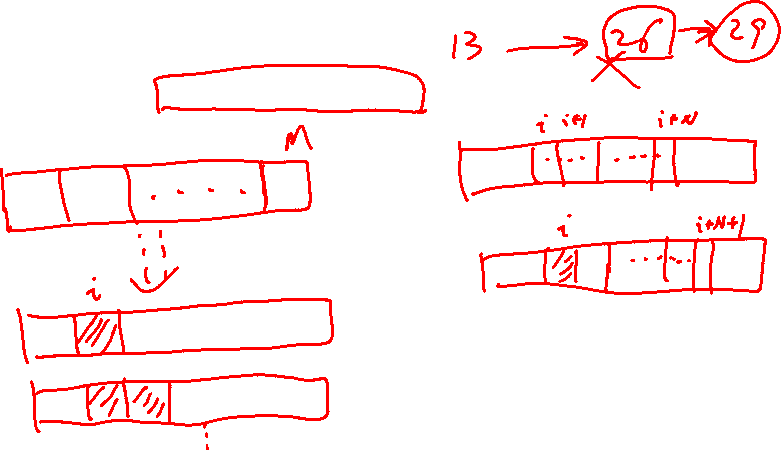 13 → 26 → 29
M
i i+1 i+N
i i+N+1
i